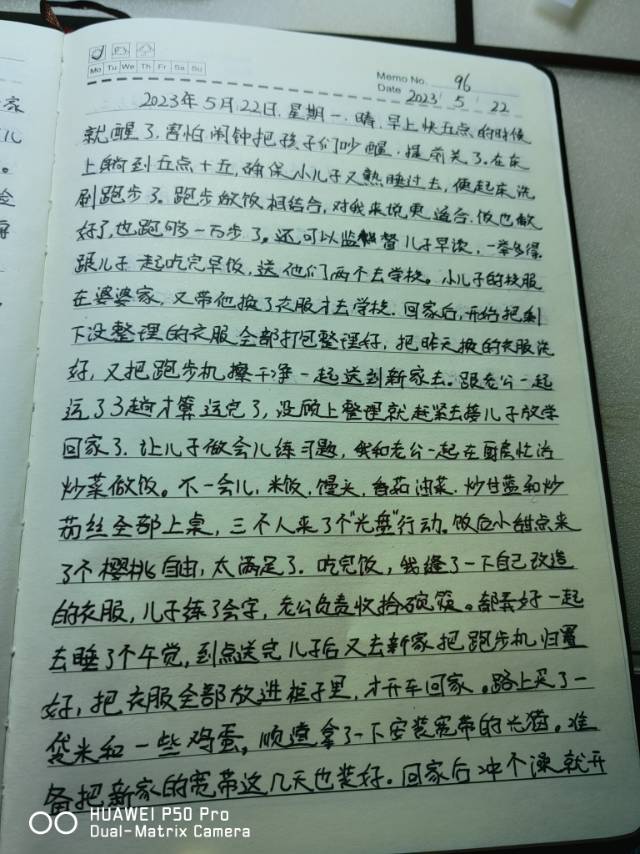 Mo Tu We Th Fr Sa Su
Memo No. 96
Date 2023 / 5 / 22
2023年5月22日.星期一.晴.早上快五点的时候
就醒了.害怕闹钟把孩子们吵醒.提前关了.在床
上躺到五点十五,确保小儿子又熟睡过去,便起床洗
刷跑步了。跑步做饭相结合,对我来说更适合.饭也做
好了,也跑够一万步了。还可以监督儿子早读,一举多得.
跟儿子一起吃完早饭,送他们两个去学校。小儿子的校服
在婆婆家,又带他换了衣服才去学校.回家后,开始把剩
下没整理的衣服全部打包整理好,把昨天换的衣服洗
好,又把跑步机擦干净一起送到新家去。跟老公一起
运了3趟才算运完了,没顾上整理就赶紧去接儿子放学
回家了.让儿子做会儿练习题,我和老公一起在厨房忙活
炒菜做饭。不一会儿,米饭,馒头,番茄油菜.炒甘蓝和炒
茄丝全部上桌,三个人来了个"光盘"行动。饭后小甜点来
了个樱桃自由,太满足了.吃完饭,我缝了一下自己改造
的衣服,儿子练了会字,老公负责收拾碗筷。都弄好一起
去睡了个午觉,到点送完儿子后又去新家把跑步机归置
好,把衣服全部放进柜子里,才开车回家。路上买了一
袋米和一些鸡蛋,顺道拿了一下安装宽带的光猫。准
备把新家的宽带这几天也装好。回家后冲个澡就开
HUAWEI P50 Pro
Dual-Matrix Camera